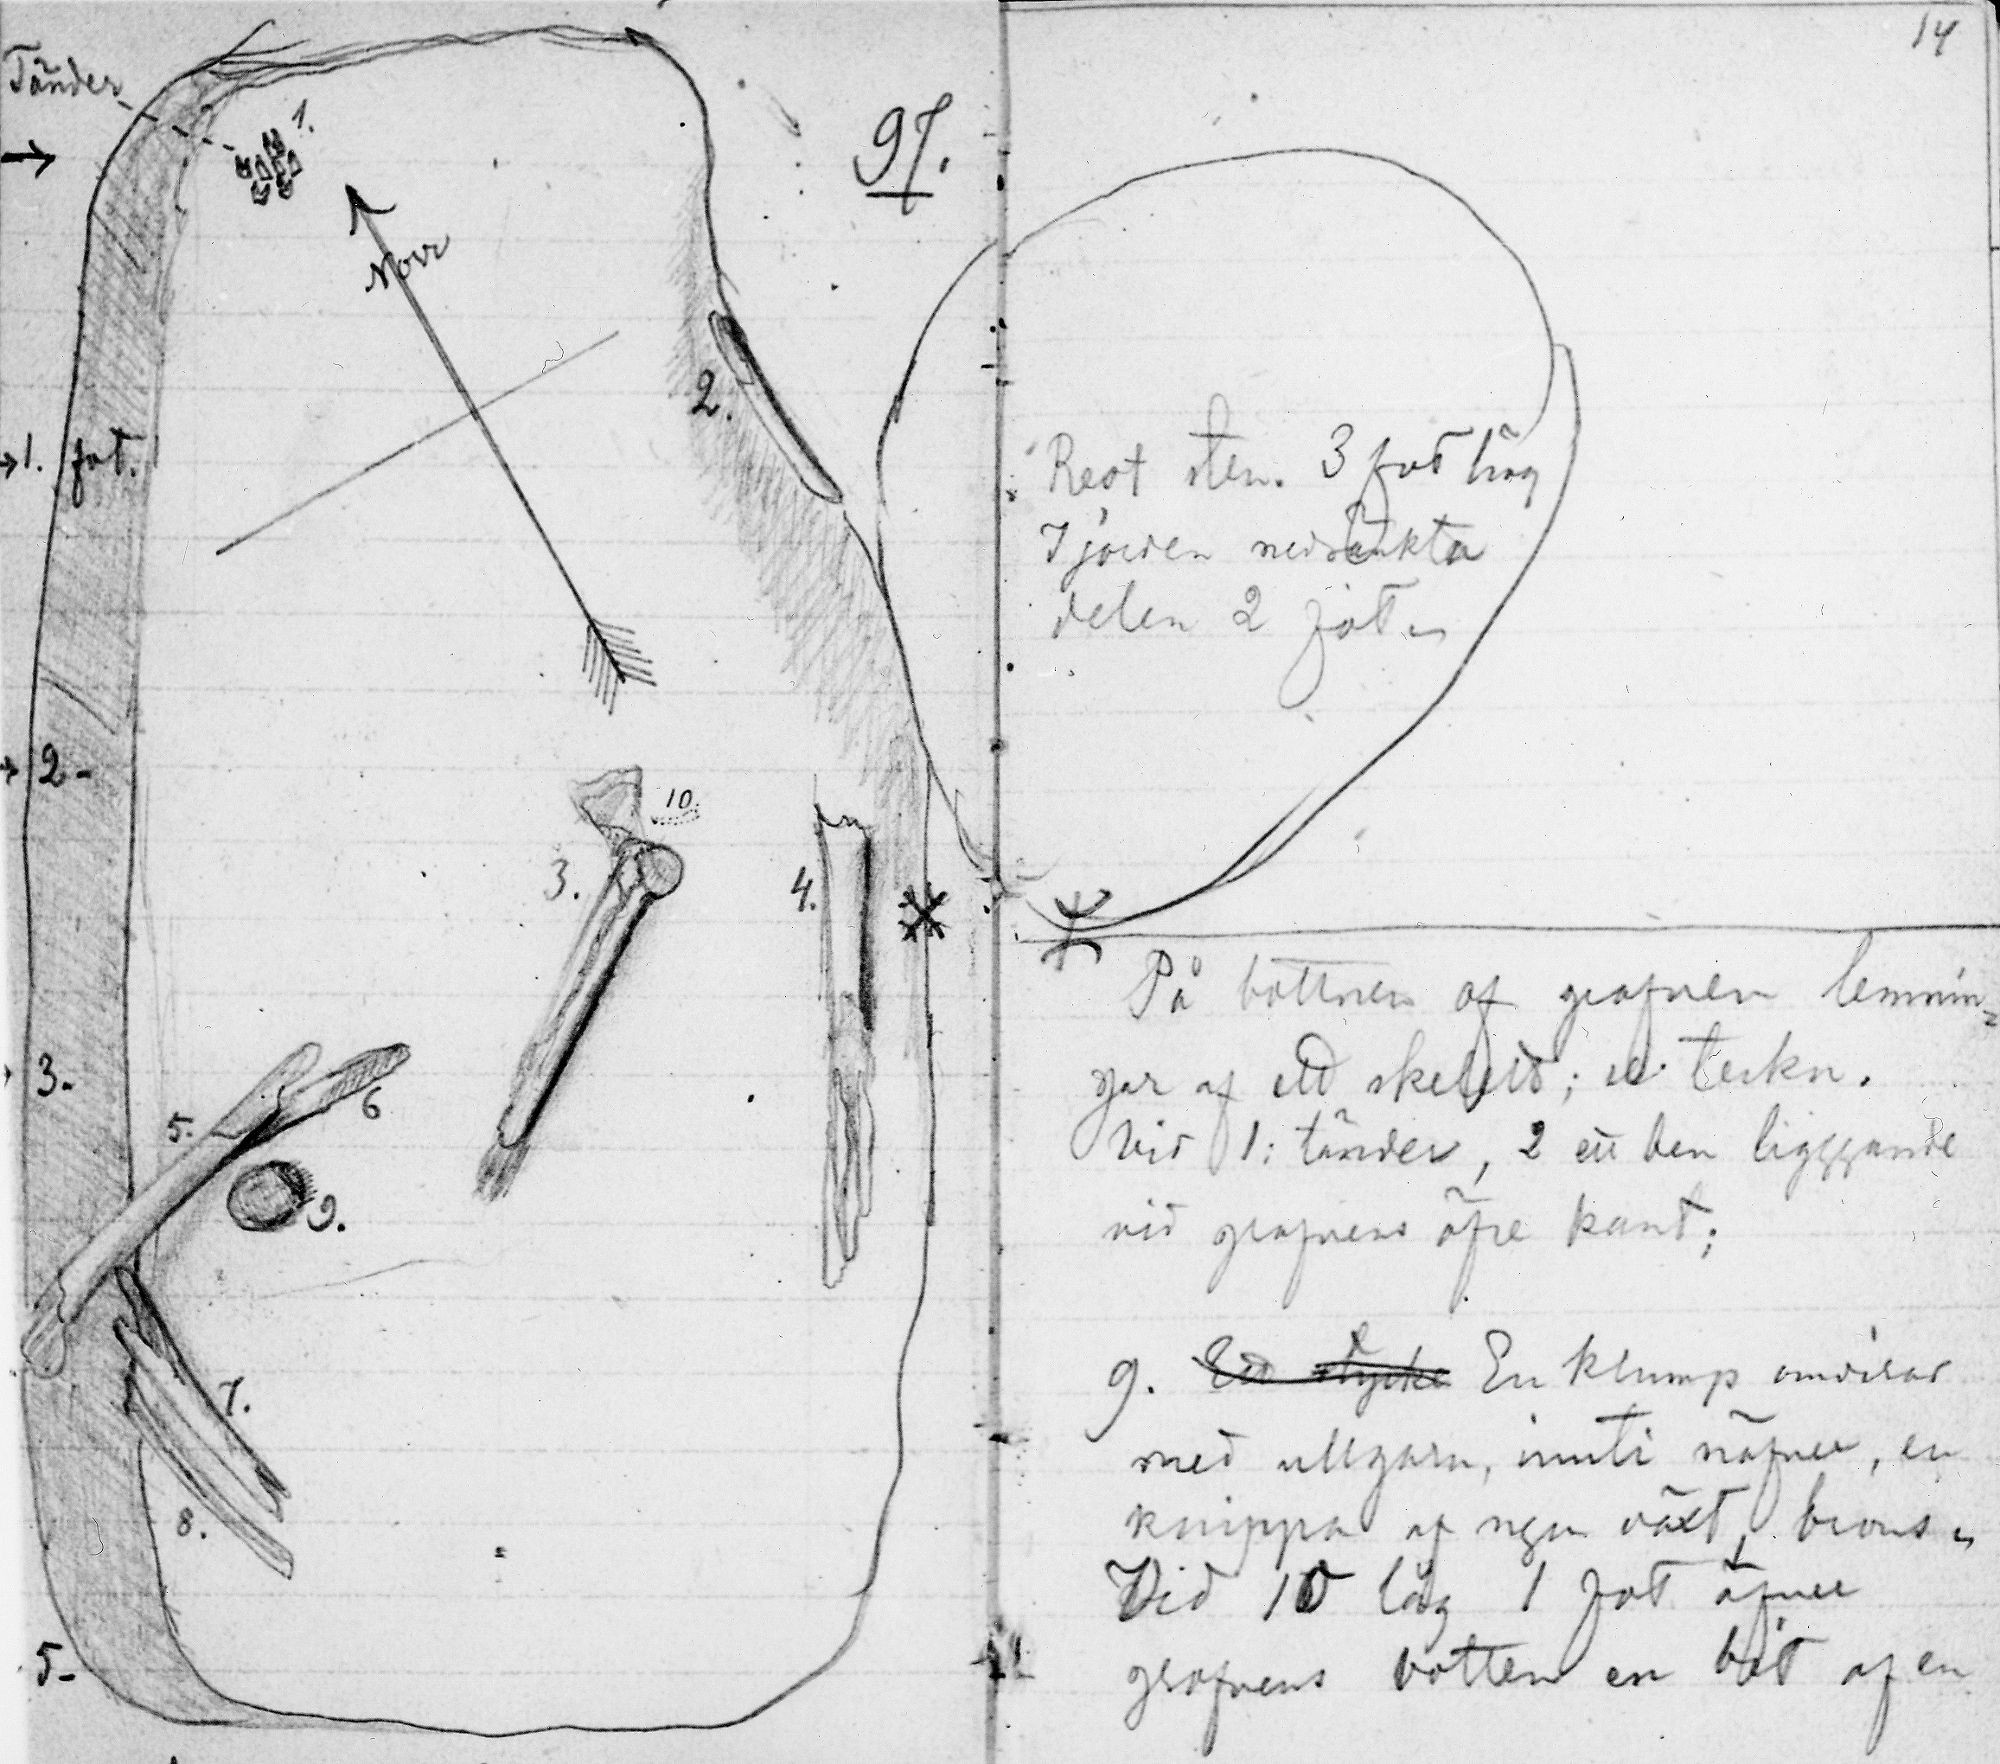 Tänder
1.
Norr
97.
2.
1. fot.
2-
10.
3.
4.
3.
5.
6
9.
7.
8.
5-
14
Rest sten. 3 fot hög
I jorden nedsänkta
delen 2 fot.
På bottnen af grafven lemnin-
gar af ett skelett; se teckn.
Vid 1: tänder, 2 ett ben liggande
vid grafvens öfre kant;
9. Ett stycke En klump omvirad
med ullgarn, inuti näfver, en
knippa af ngn växt, brons
Vid 10 låg 1 fot öfver
grafvens botten en bit af en